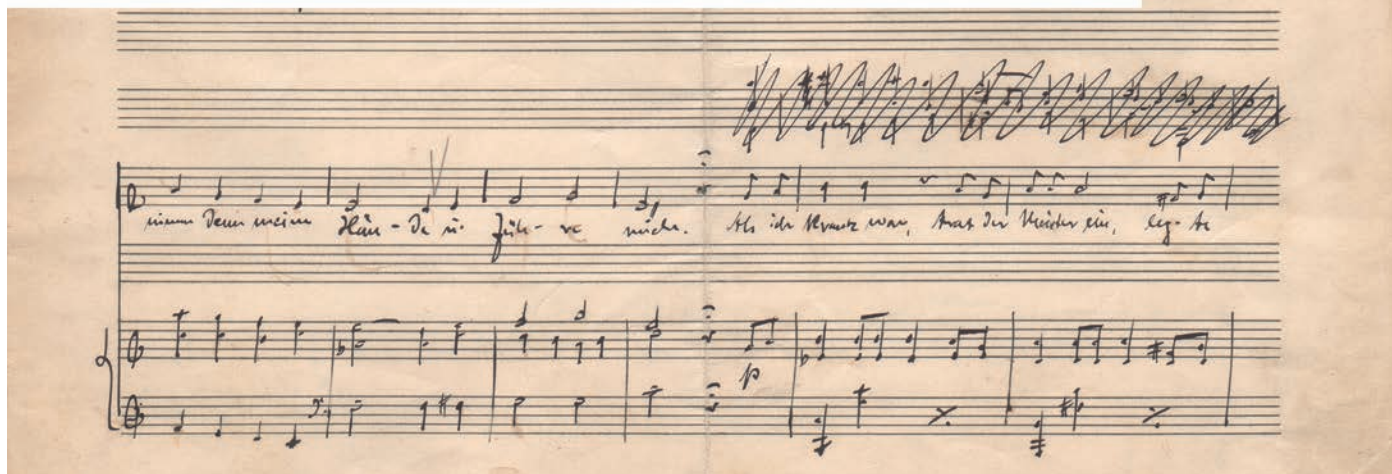 nimm Deine meine Hän-de u. Füh-re mich. Als ich krank war, trat der Meister ein, leg-te
p